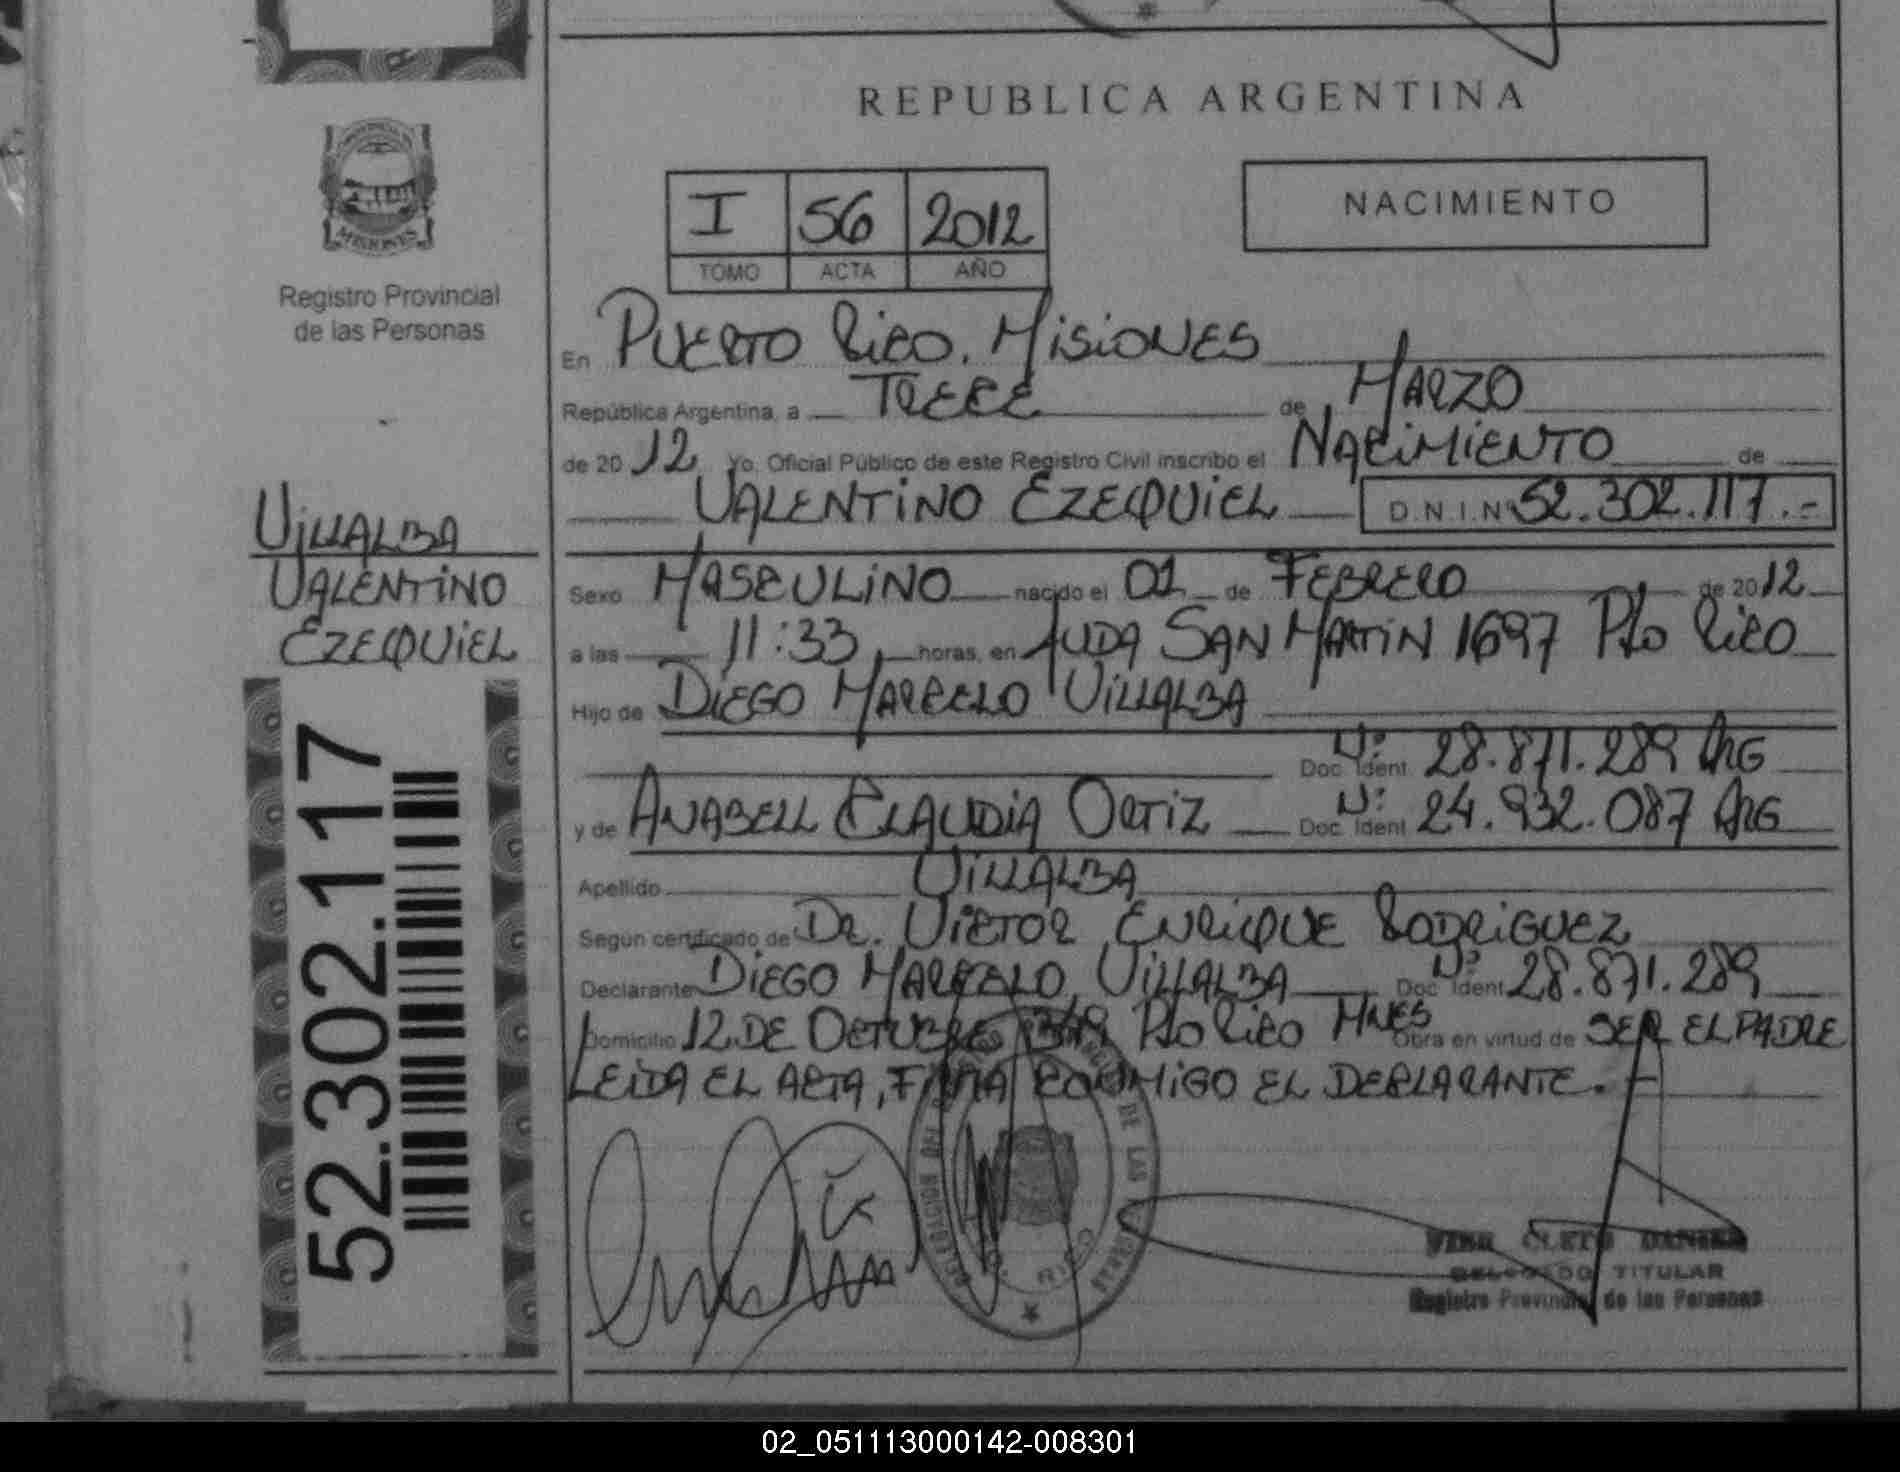 REPUBLICA ARGENTINA
MISIONES
Registro Provincial
de las Personas
I 56 2012
TOMO ACTA AÑO
NACIMIENTO
En PUERTO RICO. MISIONES
República Argentina, a TRECE de MARZO
de 2012 Yo, Oficial Público de este Registro Civil inscribo el NACIMIENTO de
VALENTINO EZEQUIEL D.N.I.Nº 52.302.117.-
VILLALBA
VALENTINO
EZEQUIEL
52.302.117
Sexo MASCULINO nacido el 01 de FEBRERO de 2012
a las 11:33 horas, en AVDA SAN MARTIN 1697 Pto RICO
Hijo de DIEGO MARCELO VILLALBA
Doc. Ident. Nº 28.871.289 ARG
y de ANABELL CLAUDIA ORTIZ Doc. Ident. Nº 24.932.087 ARG
Apellido VILLALBA
Según certificado de DR. VICTOR ENRIQUE RODRIGUEZ
Declarante DIEGO MARCELO VILLALBA Doc. Ident. Nº 28.871.289
Domicilio 12 DE OCTUBRE Pto RICO MNES Obra en virtud de SER EL PADRE
LEIDA EL ACTA, FIRMA CONMIGO EL DECLARANTE.
DE LAS
RICO
CLETO
DELEGADO TITULAR
Registro Provincial de las Personas
02_051113000142-008301